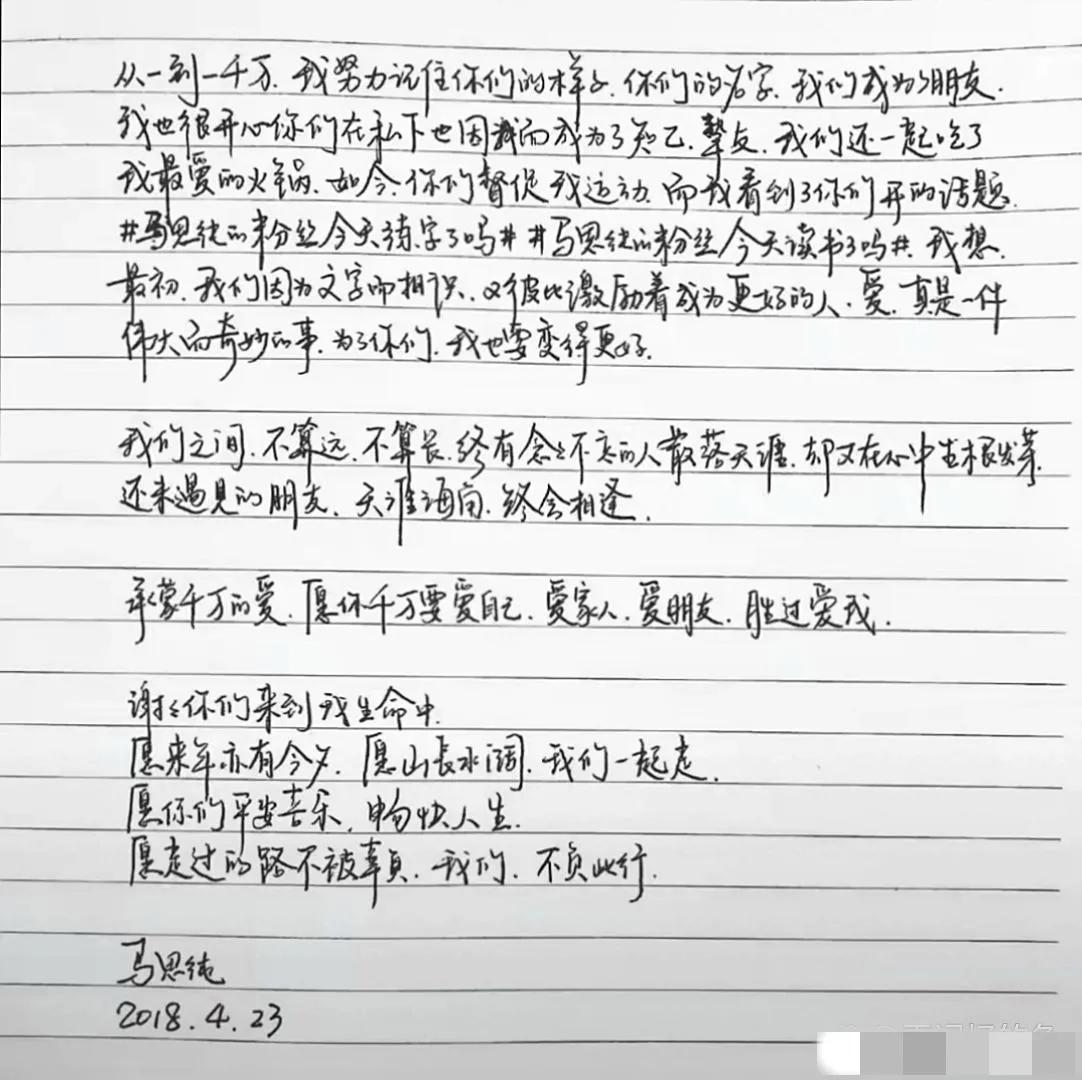 从一到一千万.我努力记住你们的样子.你们的名字.我们成为了朋友.
我也很开心你们在私下也因我而成为了知己.挚友.我们还一起吃了
我最爱的火锅.如今.你们督促我运动.而我看到了你们开的话题.
#马思纯的粉丝今天练字了吗# #马思纯的粉丝今天读书了吗#.我想.
最初.我们因为文字而相识.又彼此激励着成为更好的人.爱.真是一件
伟大而奇妙的事.为了你们.我也要变得更好.
我们之间.不算远.不算长.终有念念不忘的人散落天涯.却又在心中生根发芽.
还未遇见的朋友.天涯海角.终会相逢.
承蒙千万的爱.愿你千万要爱自己.爱家人.爱朋友.胜过爱我.
谢谢你们来到我生命中.
愿来年亦有今夕.愿山长水阔.我们一起走.
愿你们平安喜乐.畅快人生.
愿走过的路不被辜负.我们.不负此行.
马思纯
2018.4.23